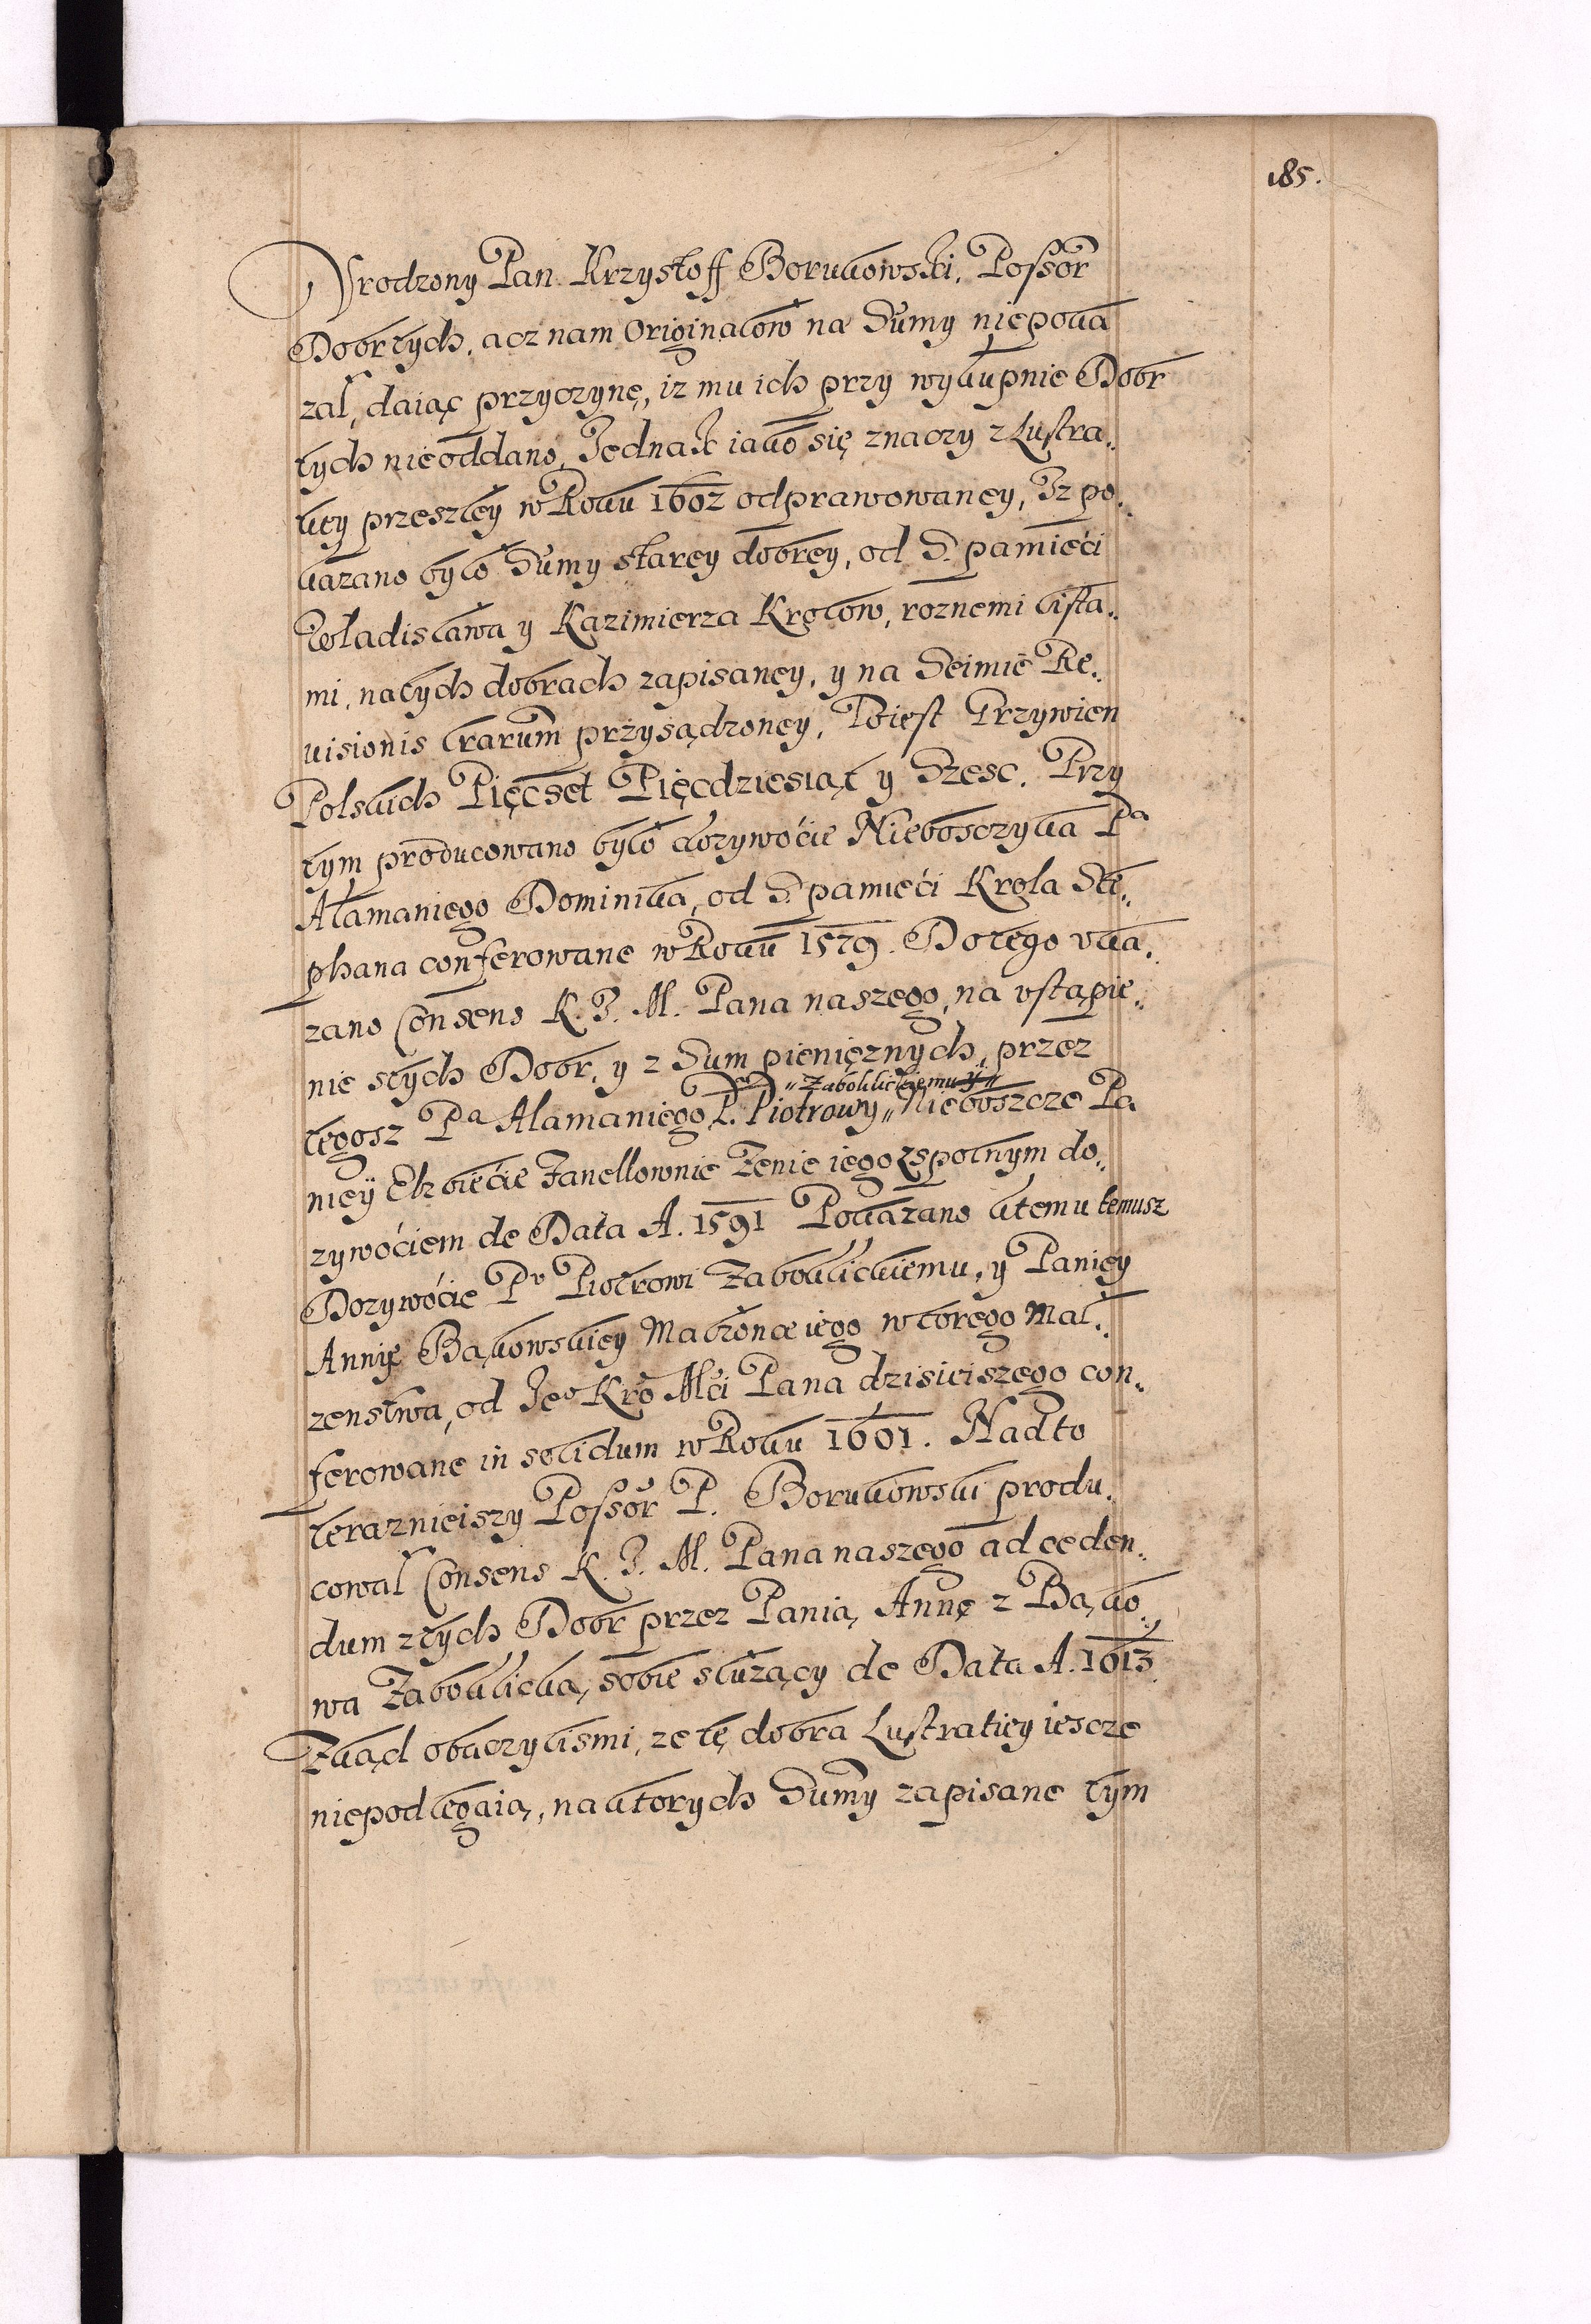 185.
Vrodzony Pan Krzysztoff Borukowski, Possor
Dobr tych, acz nam Originałow na Summy niepoka
zał, daiąc przyczynę, iz mu ich przy wykupnie Dobr
tych nieoddano, Jednak iako się znaczy z Lustra„
tiey przeszłey w Roku 1602 odprawowaney, Iz po„
kazano było Sumy starey dobrey, od S. pamieći
Władisława y Kazimierza Krolow, roznemi lista„
mi, na tych dobrach zapisaney, y na Seimie Re„
uisionis lrarum przysądzoney, To iest Grzywien
Polskich Pięćset Pięcdziesiąt y Szesc. Przy
tym producowano było dozywoćie Nieboszczyka Pa
Alamaniego Dominika, od S. pamieći Krola Ste„
phana conferowane w Roku 1579. Do tego vka„
zano Consens K. J. M. Pana naszego, na vstąpie„
nie stych Dobr, y z Sum pieniężnych, przez
tegosz Pa Alamaniego P. Piotrowy „ Zaboklickiemu y „ Nieboszcze Pa
niey Elzbiećie Janellownie Zenie iego zspolnym do„
zywoćiem de Data A. 1591 Pokazano ktemu temusz
Dozywoćie Pu Piotrowi Zaboklickiemu, y Paniey
Annie Bąkowskiey Małzonce iego wtorego Mał„
zenstwa, od Jeo Kro Mći Pana dzisieiszego con„
ferowane in solidum w Roku 1601. Nad to
teraznieiszy Possor P. Borukowski produ„
cował Consens K. J. M. Pana naszego ad ceden„
dum z tych Dobr przez Panią Annę z Bąko„
wa Zaboklicką, sobie słuzący de Data A. 1613
Zkąd obaczylismi, ze te dobra Lustratiey iescze
niepodlegaią, na ktorych Summy zapisane tym